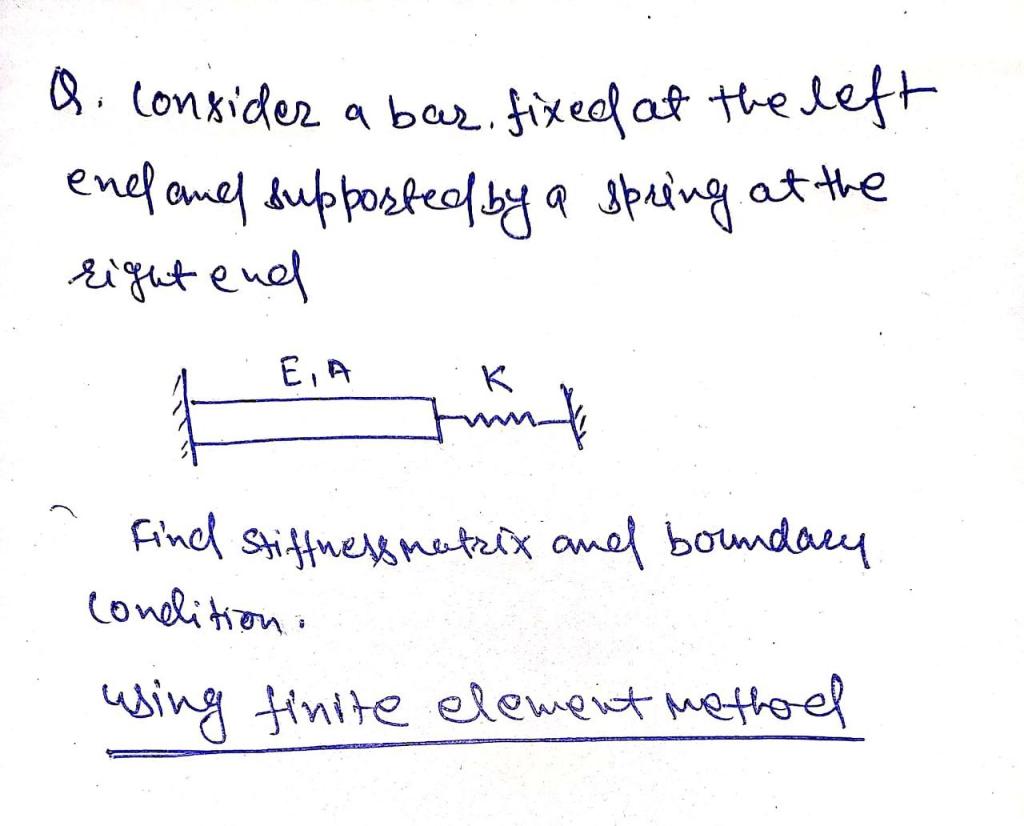 Q. Consider a bar. fixed at the left
end and supported by a spring at the
right end
E, A K
Find stiffness matrix and boundary
condition.
using finite element method